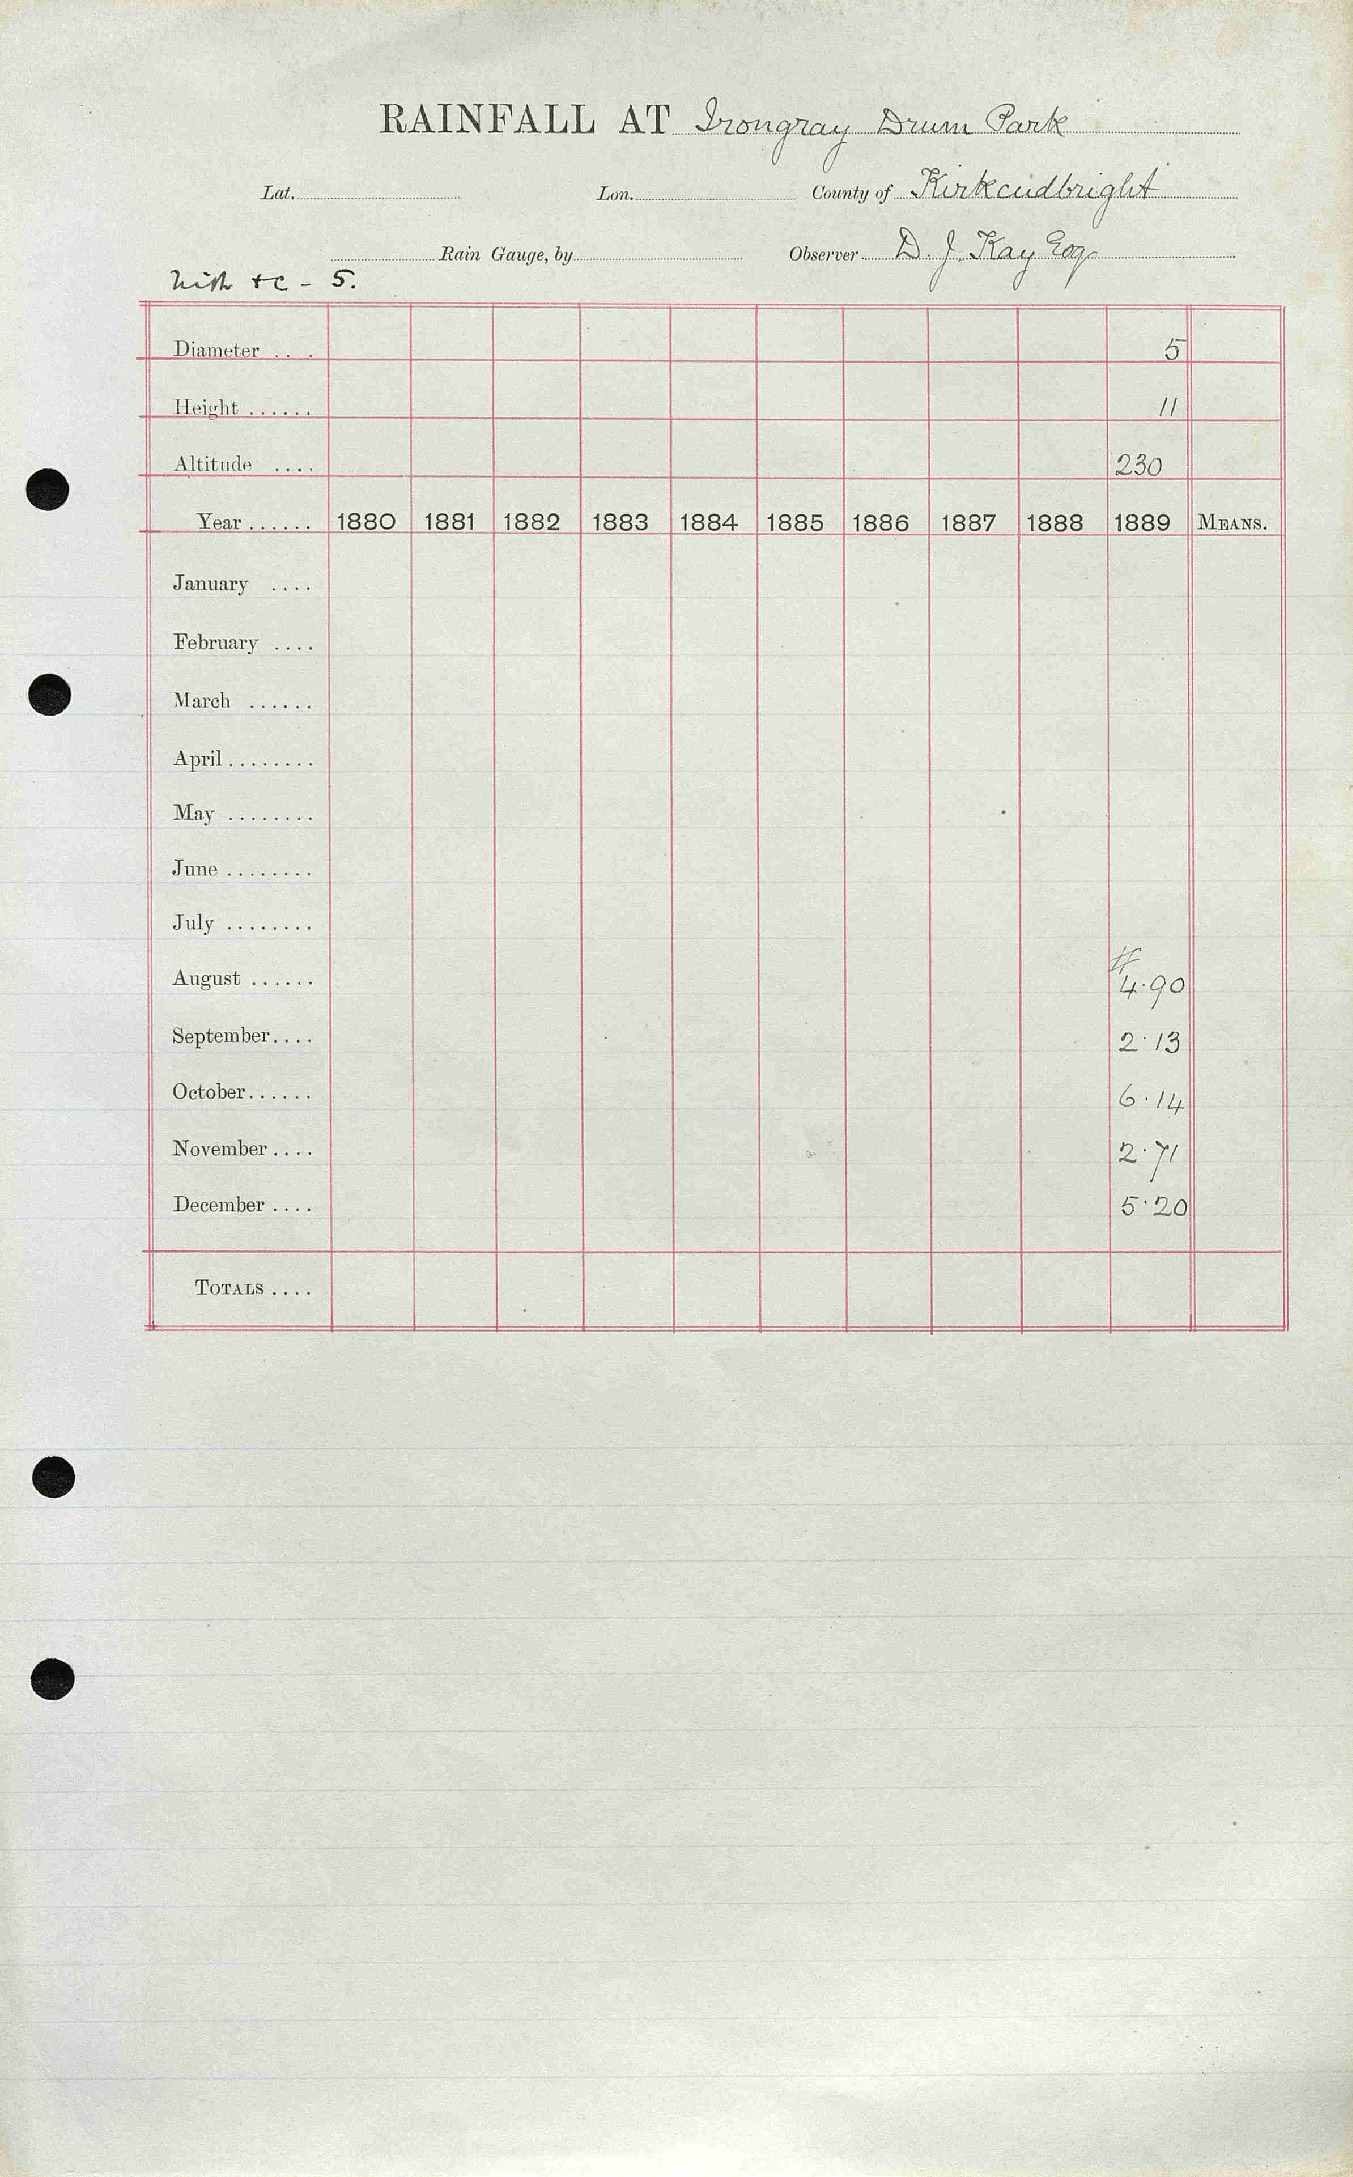 RAINFALL AT Irongray Drum Park
Lat. Lon. County of Kirkcudbright
Rain Gauge, by Observer D. J. Kay Esq
5.
Diameter .... 5
Height ...... 11
Altitude .... 230
Year ...... 1880 1881 1882 1883 1884 1885 1886 1887 1888 1889 MEANS.
January ....
February ....
March ......
April ........
May ........
June ........
July ........
August ...... 4.90
September .... 2.13
October ...... 6.14
November .... 2.71
December .... 5.20
TOTALS ....